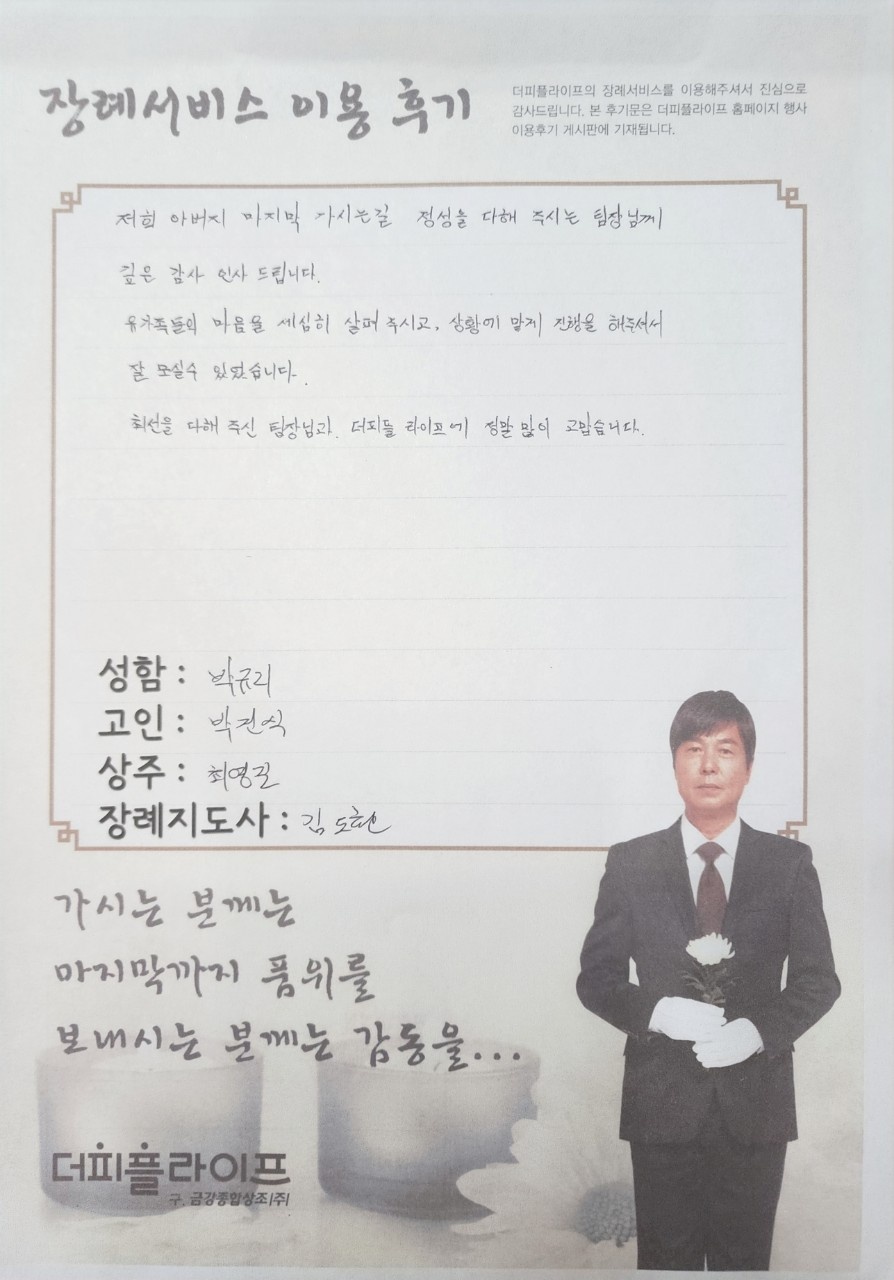 장례서비스 이용 후기
더피플라이프의 장례서비스를 이용해주셔서 진심으로
감사드립니다. 본 후기문은 더피플라이프 홈페이지 행사
이용후기 게시판에 기재됩니다.
저희 아버지 마지막 가시는길 정성을 다해 주시는 팀장님께
깊은 감사 인사 드립니다.
유가족들의 마음을 세심히 살펴 주시고, 상황에 맞게 진행을 해주셔서
잘 모실수 있었습니다.
최선을 다해 주신 팀장님과. 더피플 라이프에 정말 많이 고맙습니다.
성함 : 박규리
고인 : 박건식
상주 : 최영길
장례지도사 : 김도현
가시는 분께는
마지막까지 품위를
보내시는 분께는 감동을...
더피플라이프
구. 금강종합상조(주)